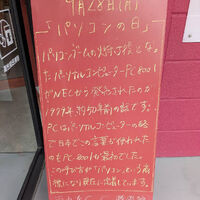 9月28日(月)
「パソコンの日」
パソコンブームの火付け役となっ
たパーソナルコンピューターPC8001
がNECから発売されたのが
1979年、約40年前の話です。
PCはパーソナルコンピューターの略
で日本でこの言葉が使われた
のもPC-8001が最初でした。
この呼び方が「パソコン」という
様になり現在に定着してます。